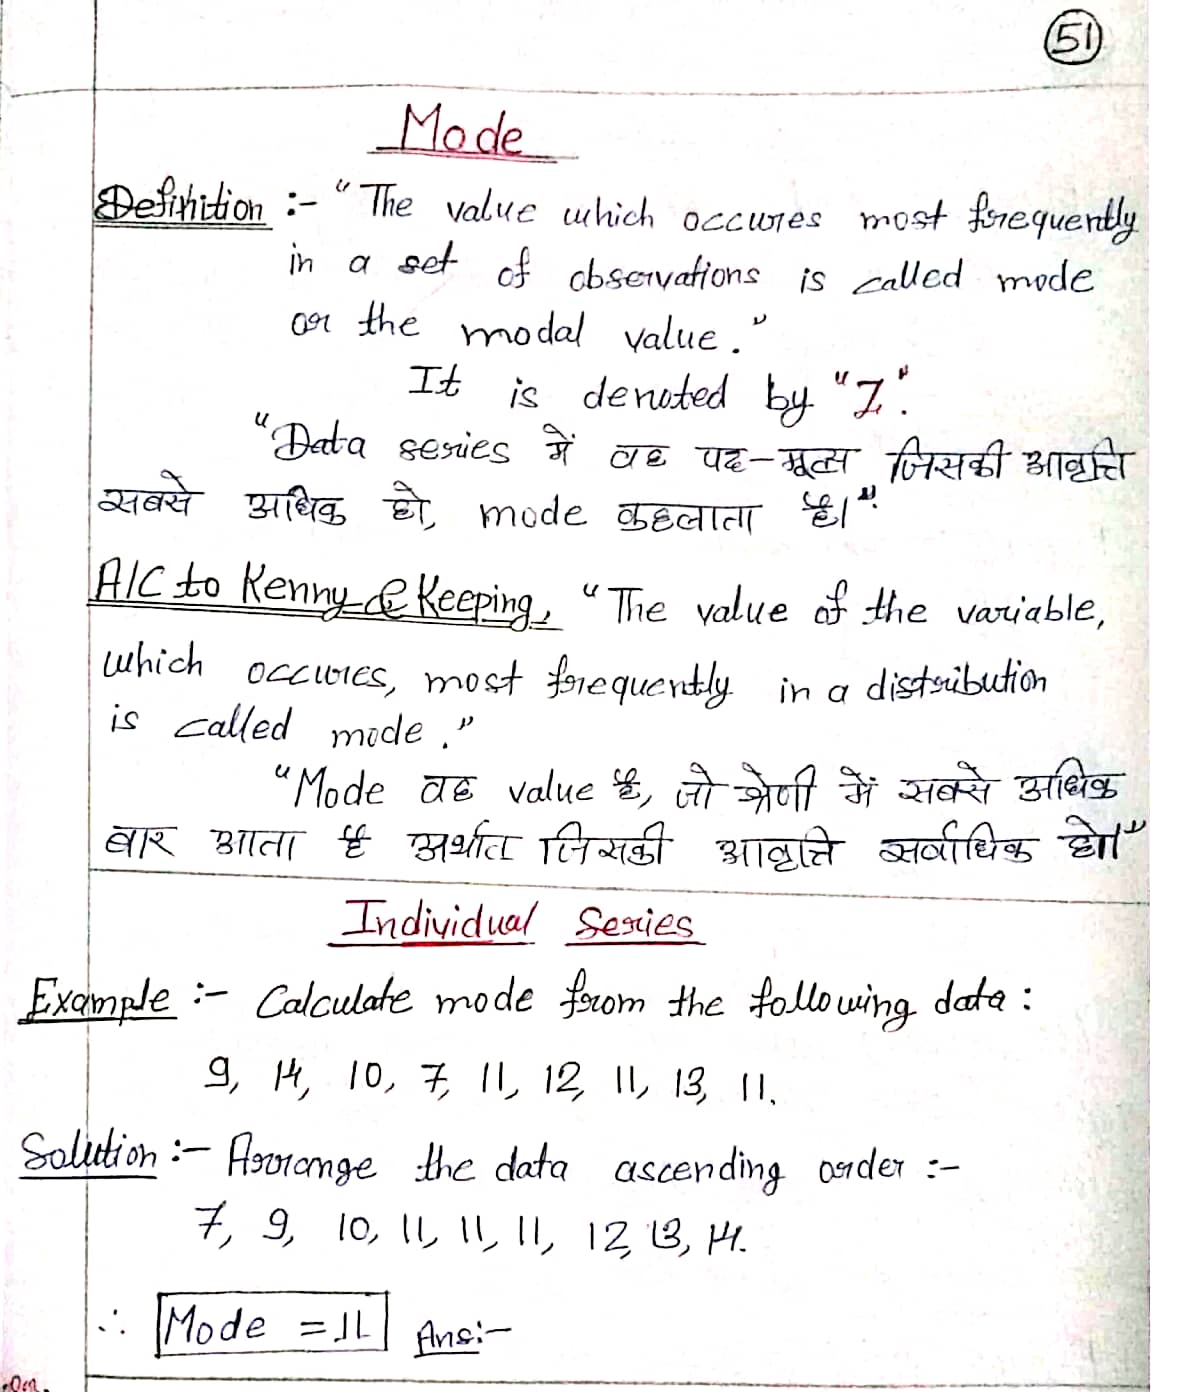 51
Mode
Definition :- "The value which occures most frequently
in a set of observations is called mode
or the modal value."
It is denoted by "Z".
"Data series में वह पद-मूल्य जिसकी आवृत्ति
सबसे अधिक हो, mode कहलाता है।"
A/C to Kenny & Keeping, "The value of the variable,
which occures, most frequently in a distribution
is called mode."
"Mode वह value है, जो श्रेणी में सबसे अधिक
बार आता है अर्थात जिसकी आवृत्ति सर्वाधिक हो।"
Individual Series
Example :- Calculate mode from the following data :
9, 14, 10, 7, 11, 12, 11, 13, 11.
Solution :- Arrange the data ascending order :-
7, 9, 10, 11, 11, 11, 12, 13, 14.
∴ Mode = 11 Ans:-